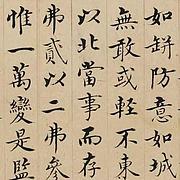 如缾防意如城
無敢或輕不東
以北當事而存
弗貳以二弗參
惟一萬變是監